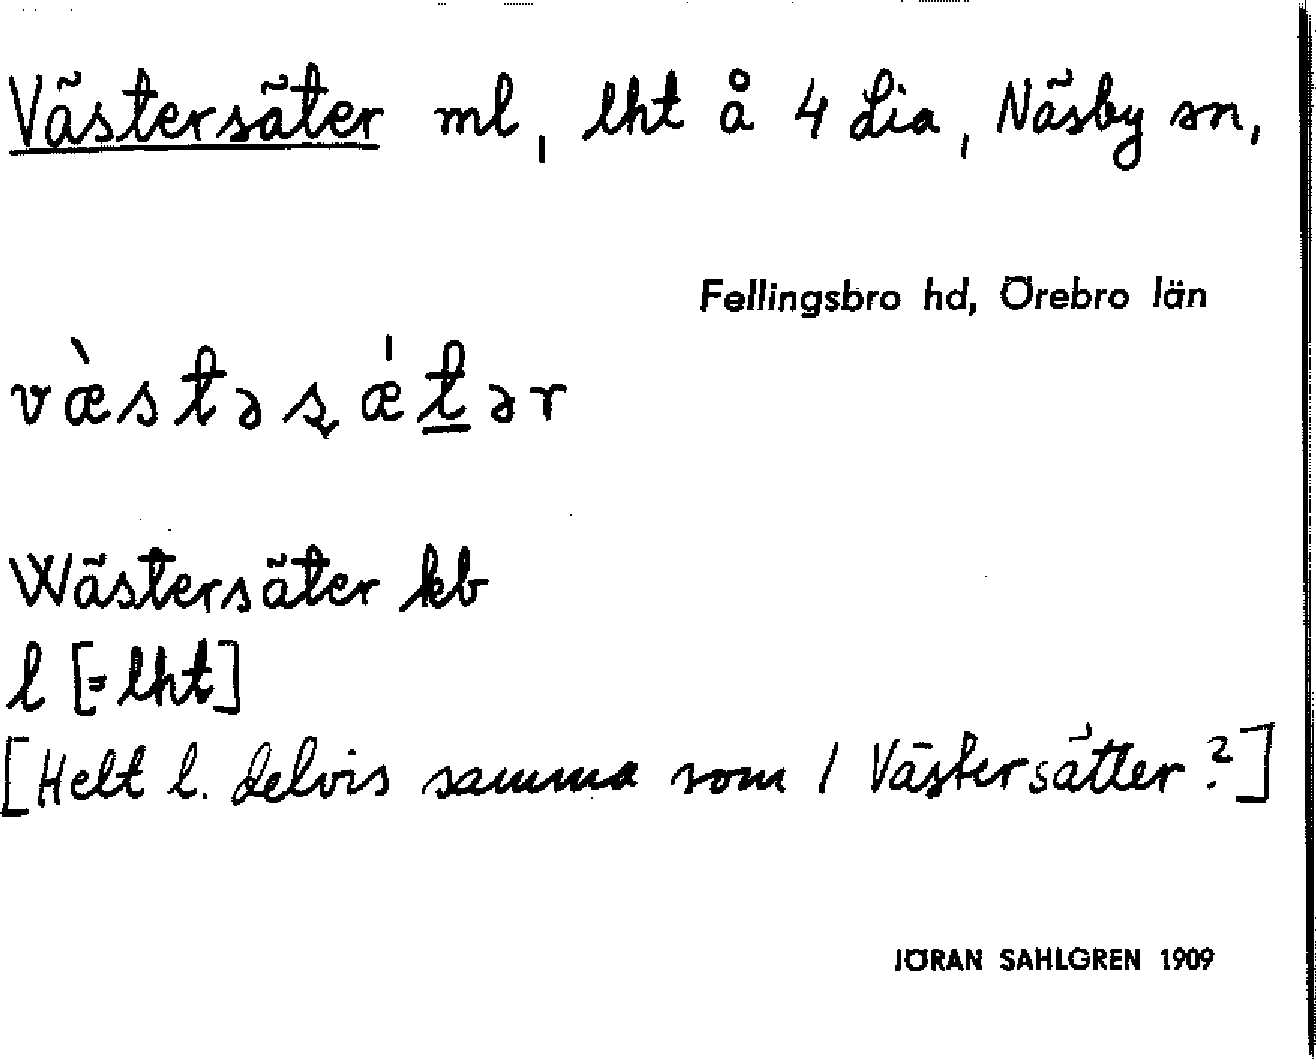 Västersäter ml, lht å 4 Lia, Näsby sn,
Fellingsbro hd, Örebro län
væ̀stəʂǽt̲ər
Wästersäter kb
l [= lht]
[Helt l. delvis samma som 1 Västersätter?]
JÖRAN SAHLGREN 1909